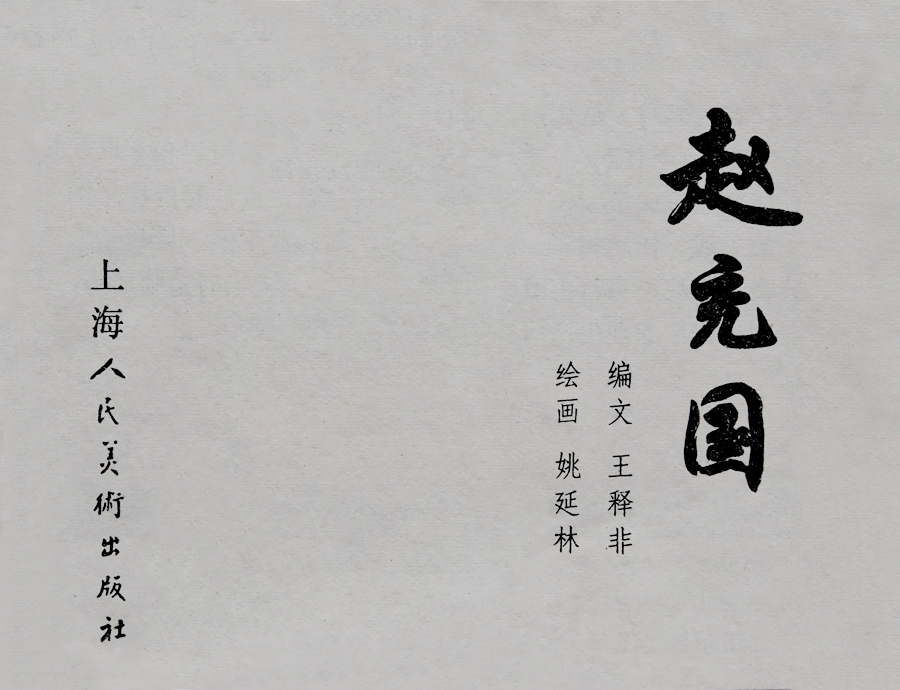 赵充国
编文 王释非
绘画 姚延林
上海人民美術出版社